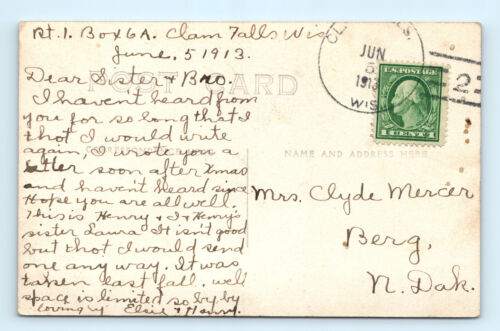 Rt. 1. Box 6A. Clam Falls Wis
June, 5 1913.
Dear Sister + Bro.
POST CARD
I havent heard from
you for so long that I
thot I would write
CORRESPONDENCE
again, I wrote you a
letter soon after Xmas
and havent heard since
Hope you are all well.
This is Henry + I + Henry's
sister Laura It isn't good
but thot I would send
one any way. It was
taken last fall. well
space is limited so by by
Lovingly Elsie + Henry.
JUN
5
1913
WIS.
2
U.S. POSTAGE
1 CENT 1
NAME AND ADDRESS HERE
Mrs. Clyde Mercer
Berg,
N. Dak.